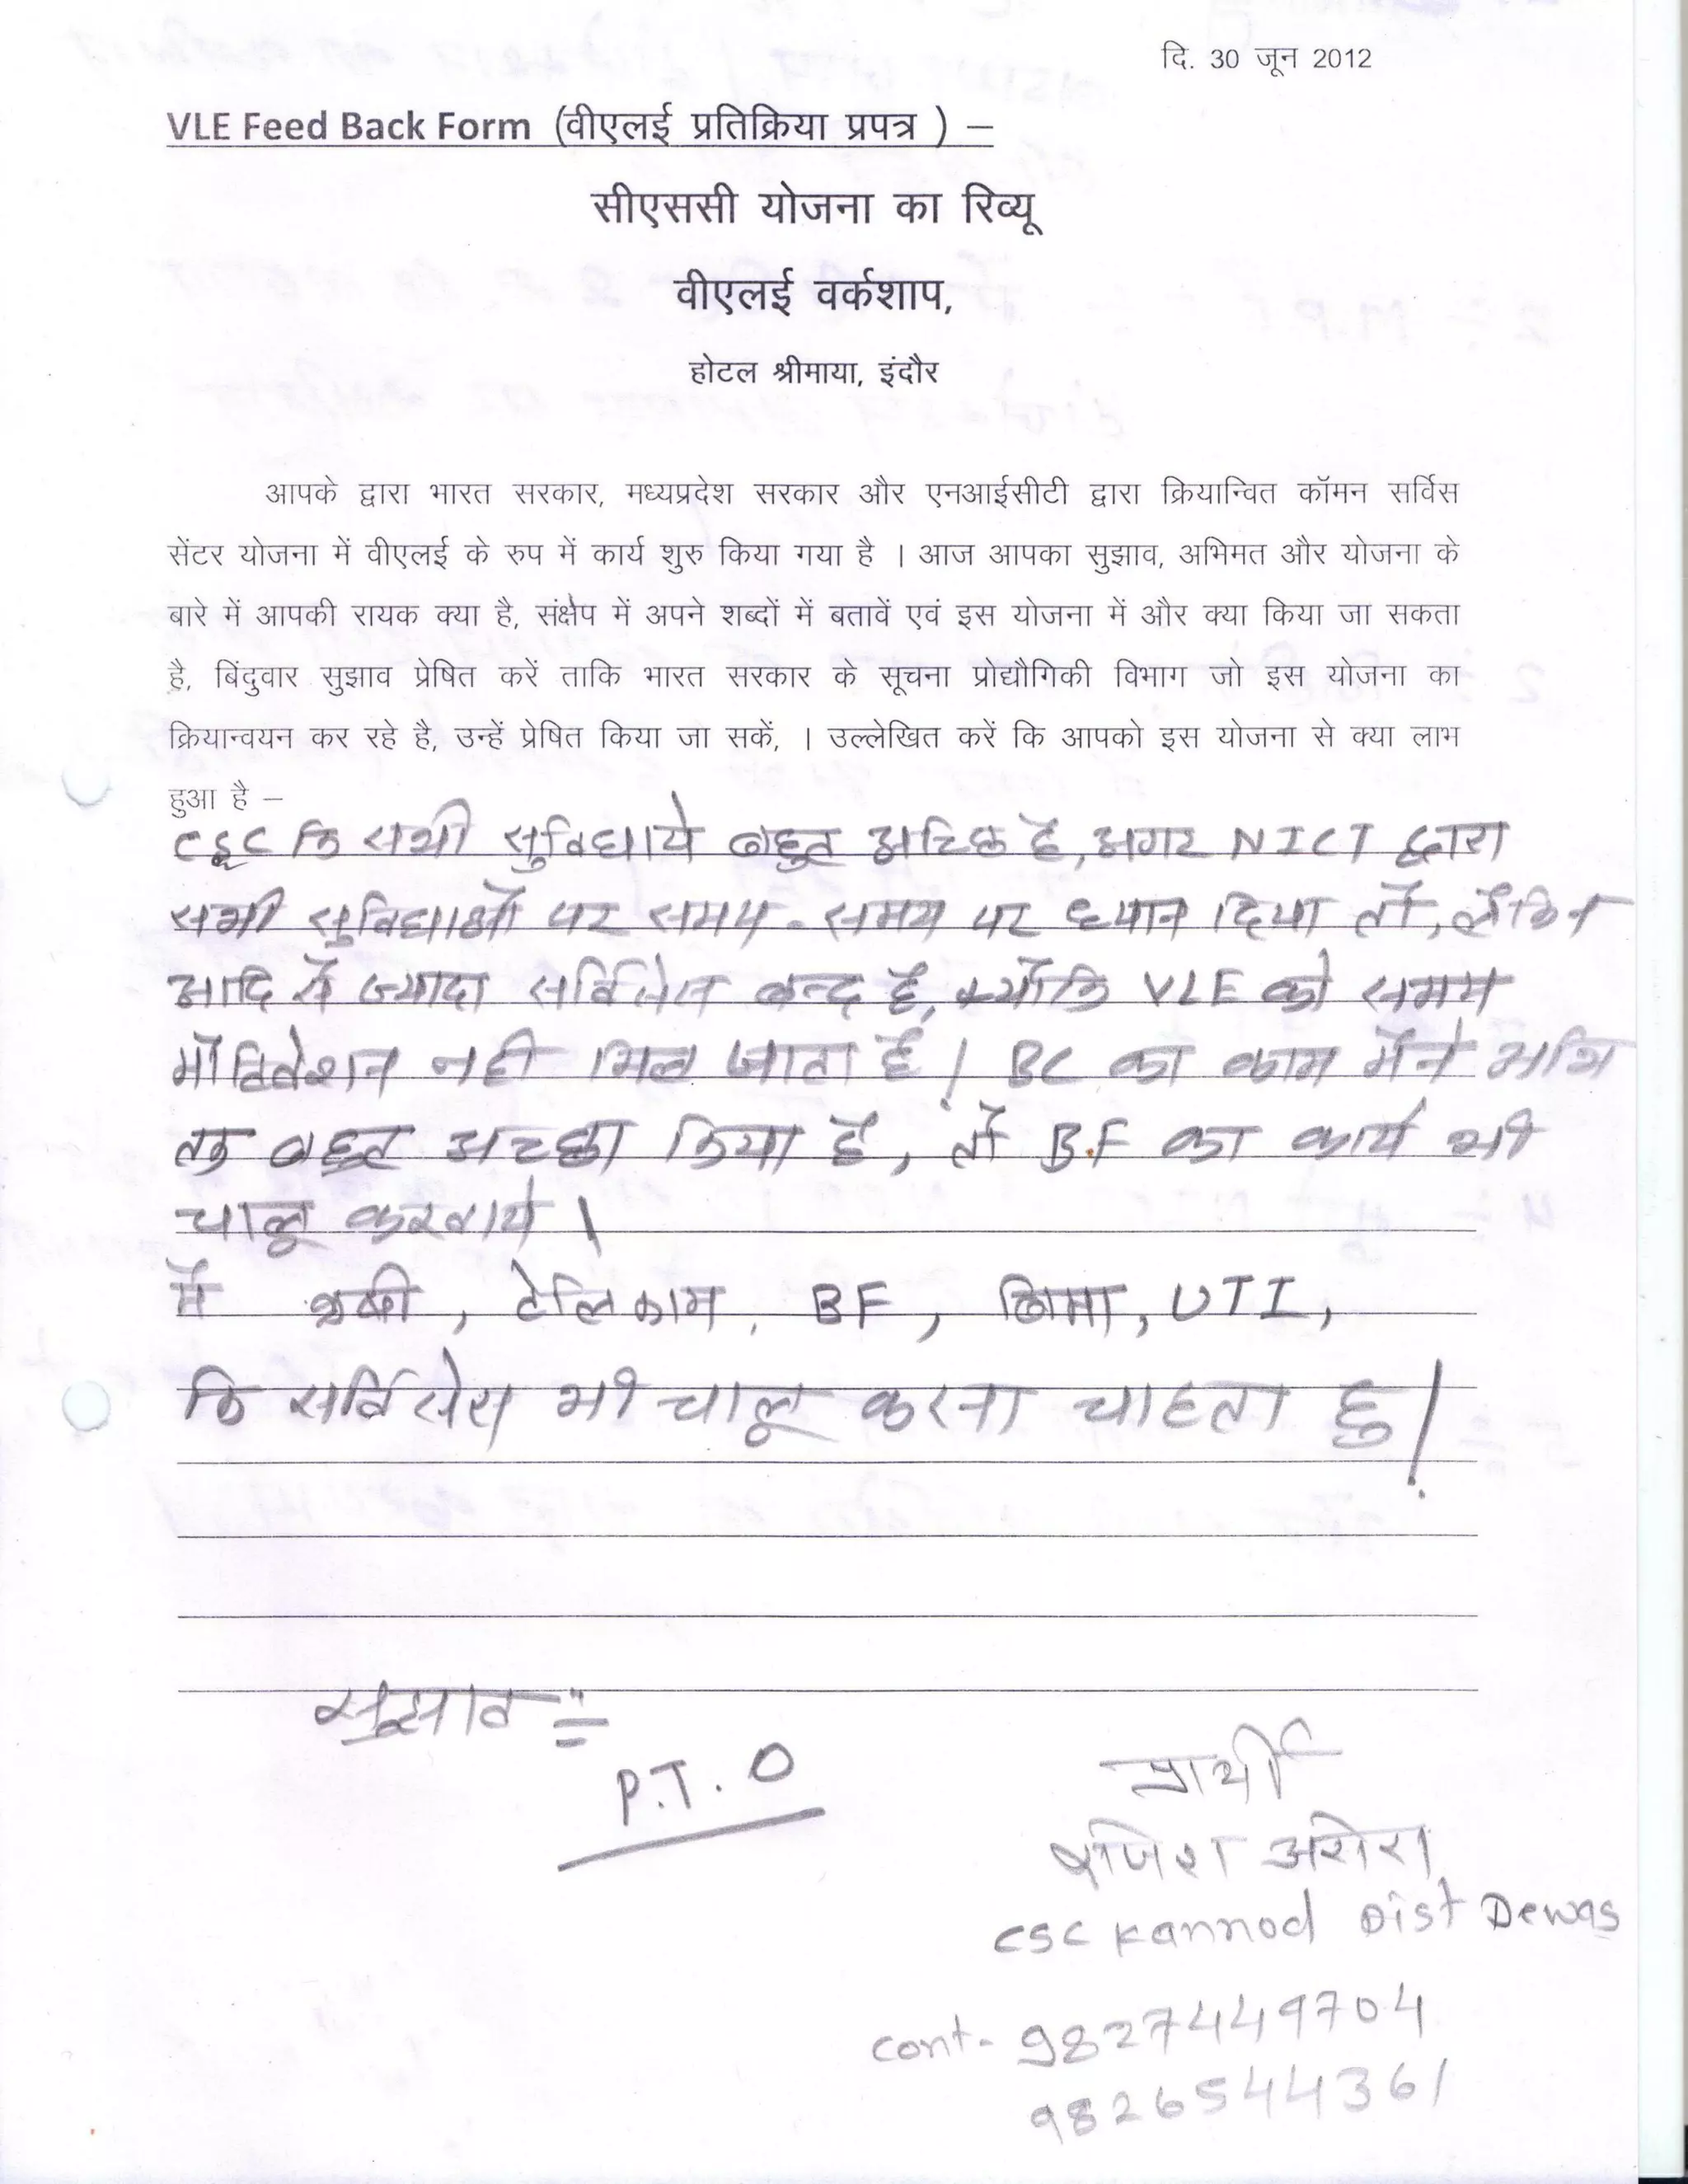 दि. 30 जून 2012
VLE Feed Back Form (वीएलई प्रतिक्रिया प्रपत्र ) –
सीएससी योजना का रिव्यू
वीएलई वर्कशाप,
होटल श्रीमाया, इंदौर
आपके द्वारा भारत सरकार, मध्यप्रदेश सरकार और एनआईसीटी द्वारा क्रियान्वित कॉमन सर्विस
सेंटर योजना में वीएलई के रुप में कार्य शुरु किया गया है । आज आपका सुझाव, अभिमत और योजना के
बारे में आपकी रायक क्या है, संक्षेप में अपने शब्दों में बतावें एवं इस योजना में और क्या किया जा सकता
है, बिंदुवार सुझाव प्रेषित करें ताकि भारत सरकार के सूचना प्रोद्यौगिकी विभाग जो इस योजना का
क्रियान्वयन कर रहे है, उन्हें प्रेषित किया जा सकें, । उल्लेखित करें कि आपको इस योजना से क्या लाभ
हुआ है –
CSC कि सभी सुविधाये बहुत अच्छि है, अगर NICT द्वारा
सभी सुविधाओं पर समय-समय पर ध्यान दिया तों, लेंकिन
आदि से ज्यादा सर्विसेस बन्द है, क्योंकि VLE को समय
मोंटिवेशन नही मिल पाता है। BC का काम मेंने अभि
तक बहुत अच्छा किया है, तों B.F का कार्य भी
चालू करवाये।
में कृषी, टेलिकाम, BF, बिमा, UTI,
कि सर्विसेस भी चालू करना चाहता हु।
सुझाव :=
P.T.O
प्रार्थी
CSC Kannod Dist Dewas
cont- 9827449704
9826544361